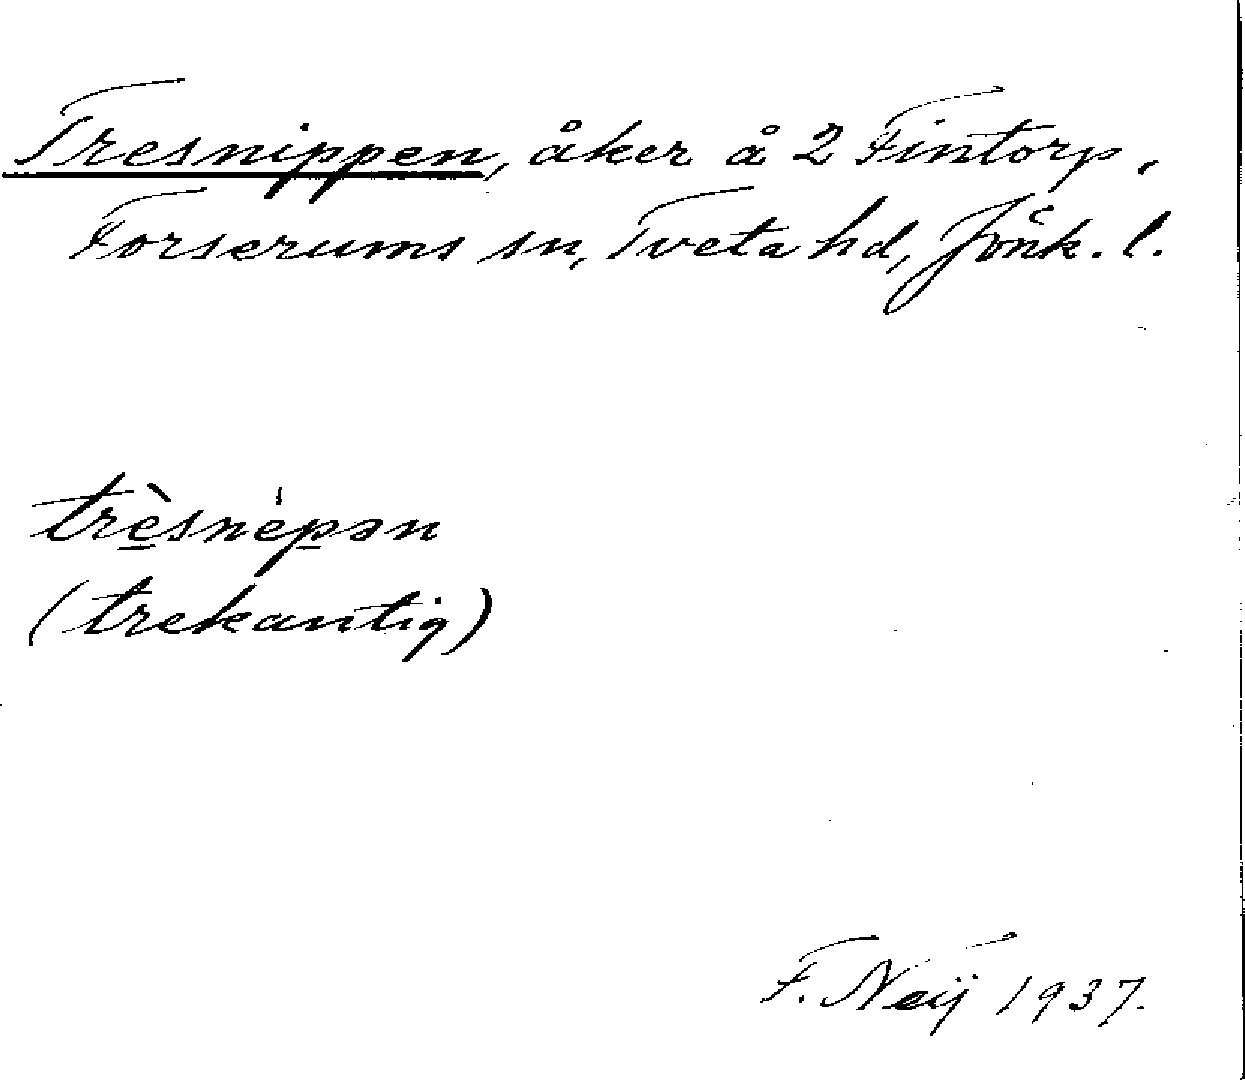 Tresnippen, åker å 2 Fintorp,
Forserums sn, Tveta hd, Jönk. l.
trèsnépən
(trekantig)
F. Neij 1937.